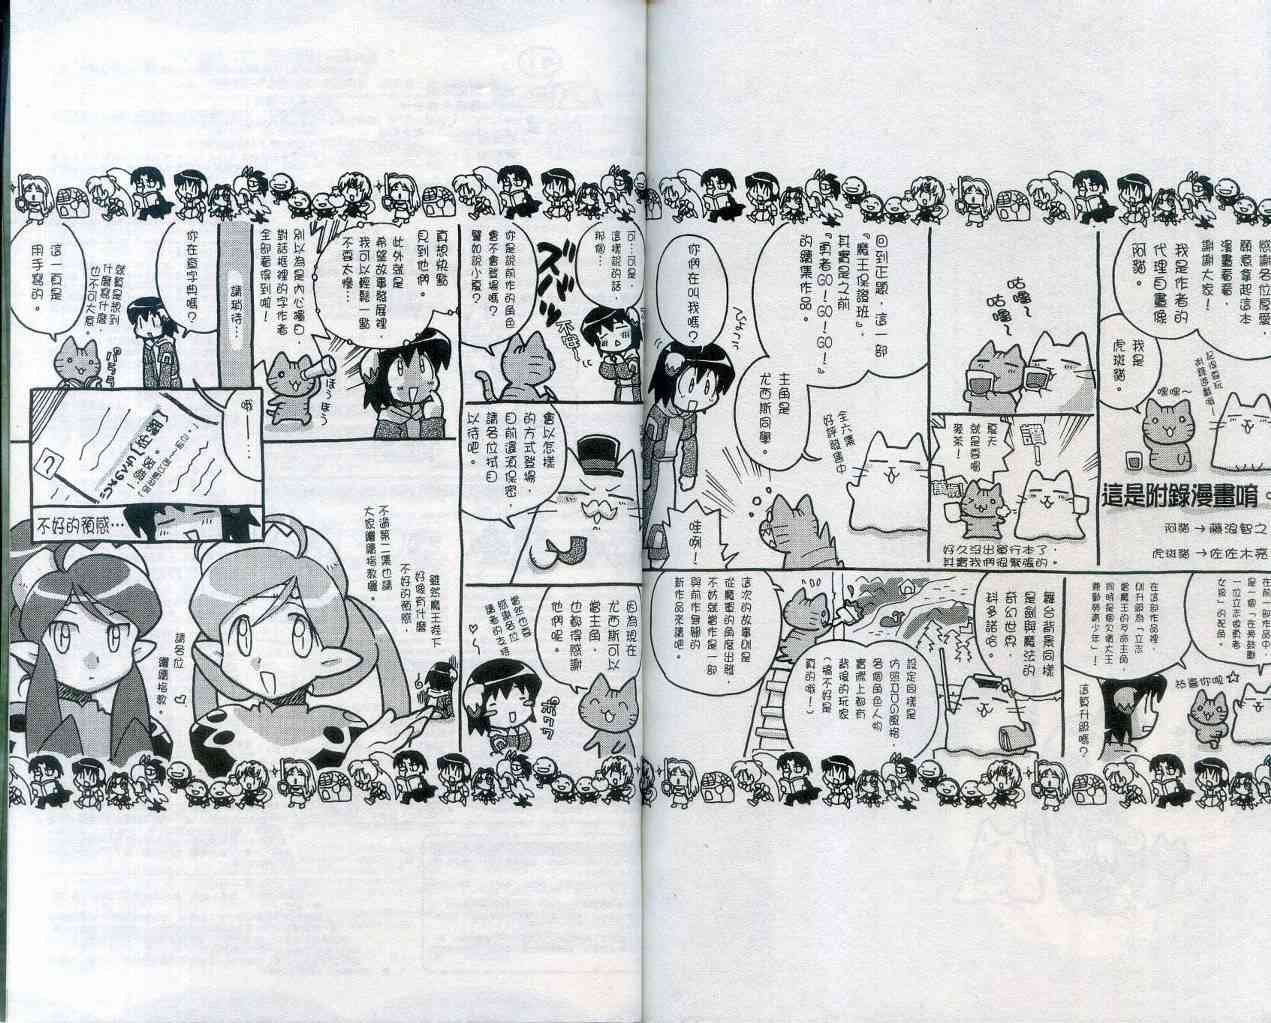 感謝各位厚愛
願意拿起這本
漫畫看看，
謝謝大家！
我是作者的
代理自畫像
阿貓。
我是
虎斑貓。
嘿嘿～
這是附錄漫畫唷。
阿貓→藤浪智之
虎斑貓→佐佐木亮
咕嚕～
咕嚕～
讚
夏天
就是要喝
麥茶！
好久沒出單行本了，
其實我們很緊張的。
回到正題，這一部
『魔王保證班』，
其實是之前
『勇者GO！GO！GO！』
的續集作品。
主角是
尤西斯同學。
全六集
好評發售中
你們在叫我嗎？
哇咧！
在前一部作品中
是一個「在旁鼓勵
一位立志當勇者
女孩」的配角，
在這部作品裡，
則升級為「立志
當魔王的男主角，
同時是個父債大王
兼勤勞青少年」！
恭喜你呢☆
這算升級嗎？
舞台背景同樣
是劍與魔法的
奇幻世界，
科多諾哈。
設定同樣是
仿照RPG風格，
各個角色人物
實際上都有
背後的玩家
（搞不好是
真的哦！）
這次的故事則是
從魔軍的角度出發，
不妨就當作是一部
與前作無關的
新作品來讀吧。
可…可是，
這樣說的話，
那個…
ズズバッ
不唔～
你是說前作的角色
會不會登場嗎？
譬如說小夏？
會以怎樣
的方式登場，
目前還須保密，
請各位拭目
以待吧。
因為現在
尤西斯可以
當主角，
也都得感謝
他們呢。
當然也要
感謝各位
讀者的支持
真想快點
見到他們。
此外就是
希望故事發展裡
我可以輕鬆一點
不要太慘…
ほうほう
別以為是內心獨白，
對話框裡的字作者
全部看得到啦！
請稍待…
你在查字典嗎？
就算是說到
什麼寫什麼，
也不可大意。
這一頁是
用手寫的。
哦——…
不好的預感…
不過第二集也請
大家繼續指教囉。
雖然魔王陛下
好像有什麼
不好的預感
請各位
繼續指教。♡